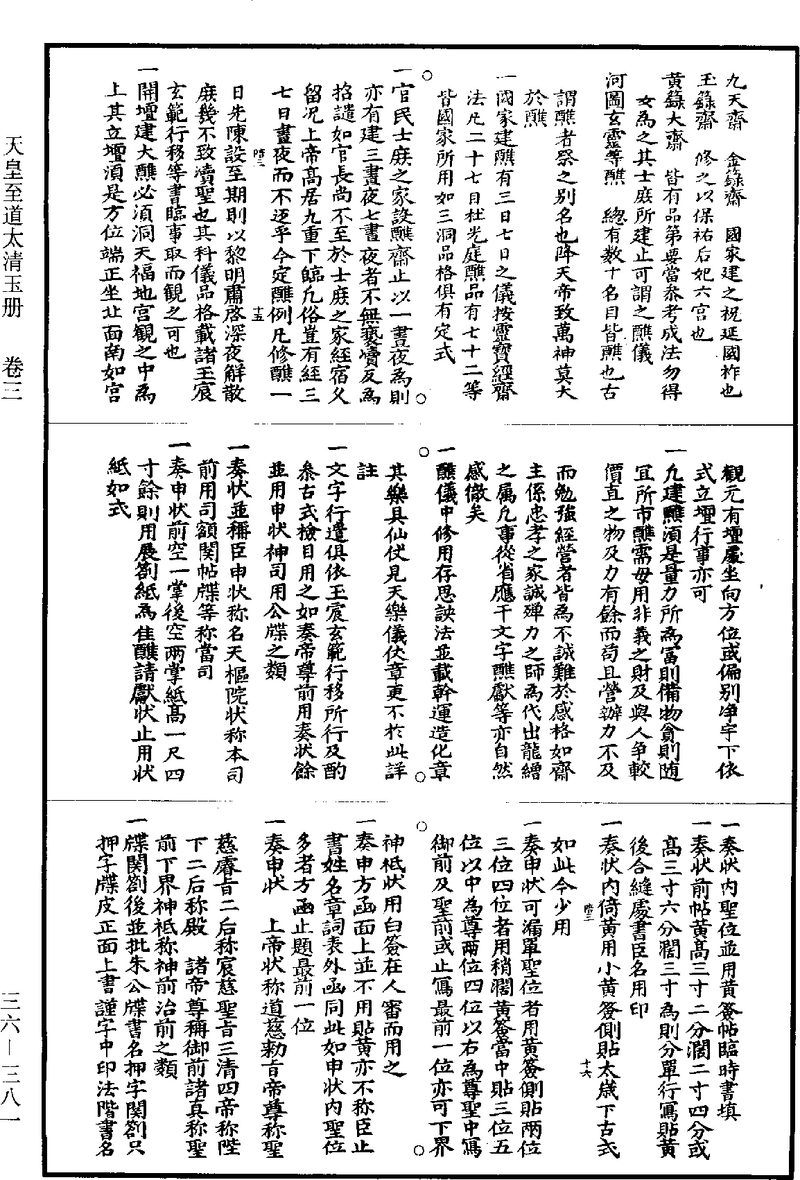 九天齋　金籙齋　國家建之祝延國祚也
玉籙齋　修之以保祐后妃六宮也
黃籙大齋　皆有品第要當參考成法勿得
女為之其士庶所建止可謂之醮儀
河圖玄靈等醮　總有數十名目皆醮也古
謂醮者祭之别名也降天帝致萬神莫大
於醮
一國家建醮有三日七日之儀按靈寶經齋
法凡二十七日杜光庭醮品有七十二等
皆國家所用如三洞品格俱有定式
一官民士庶之家設醮齋止以一晝夜為則
亦有建三晝夜七晝夜者不無褻瀆反為
招譴如官長尚不至於士庶之家經宿久
留况上帝高居九重下臨凡俗豈有經三
七日晝夜而不返乎今定醮例凡修醮一
日先陳設至期則以黎明肅啓深夜解散
庶幾不致瀆聖也其科儀品格載諸玉宸
玄範行移等書臨事取而觀之可也
一開壇建大醮必須洞天福地宮觀之中為
上其立壇須是方位端正坐北面南如宮
觀元有壇處坐向方位或偏别净宇下依
式立壇行事亦可
一凡建醮須是量力所為富則備物貧則随
宜所市醮需毋用非義之財及與人争較
價直之物及力有餘而苟且營辦力不及
而勉強經營者皆為不誠難於感格如齋
主係忠孝之家誠殫力之師為代出龍繒
之屬凡事從省應干文字醮獻等亦自然
感徹矣
一醮儀中修用存思訣法並載幹運造化章
其樂具仙仗見天樂儀仗章更不扵此詳
註
一文字行遣俱依玉宸玄範行移所行及酌
叅古式檢目用之如奏帝尊前用奏状餘
並用申状神司用公牒之類
一奏状並稱臣申状称名天樞院状称本司
前用司額関帖牒等称當司
一奏申状前空一掌後空兩掌紙髙一尺四
寸餘則用展劄紙為佳醮請獻状止用状
紙如式
一奏状内聖位並用黃簽帖臨時書填
一奏状前帖黃髙三寸二分濶二寸四分或
髙三寸六分濶三寸為則分單行寫貼黃
後合縫處書臣名用印
一奏状内倚黃用小黃簽側貼太歲下古式
如此今少用
一奏申状可漏單聖位者用黃簽側貼兩位
三位四位者用稍濶黃簽當中貼三位五
位以中為尊兩位四位以右為尊聖中寫
御前及聖前或止寫最前一位亦可下界
神祇状用白簽在人審而用之
一奏申方函面上並不用貼黃亦不称臣止
書姓名章詞表外函同此如申状内聖位
多者方函止題最前一位
一奏申状　上帝状称道慈勅旨帝尊称聖
慈睿旨二后称宸慈聖旨三清四帝称陛
下二后称殿　諸帝尊稱御前諸真称聖
前下界神祇称神前治前之類
一牒関劄後並批朱公牒書名押字関劄只
押字牒皮正面上書謹字中印法階書名
天皇至道太清玉册　卷三
三六—三八一